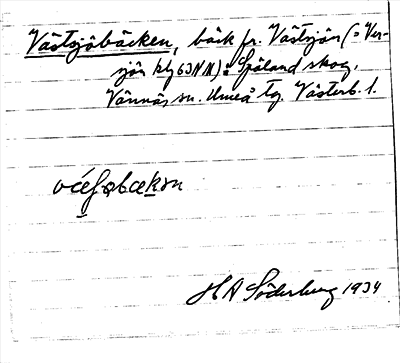 Västsjöbäcken, bäck fr. Västsjön (= Ver-
sjön kbl 63 NN): Spöland skog,
Vännäs sn. Umeå tg. Västerb. l.
H A Söderberg 1934